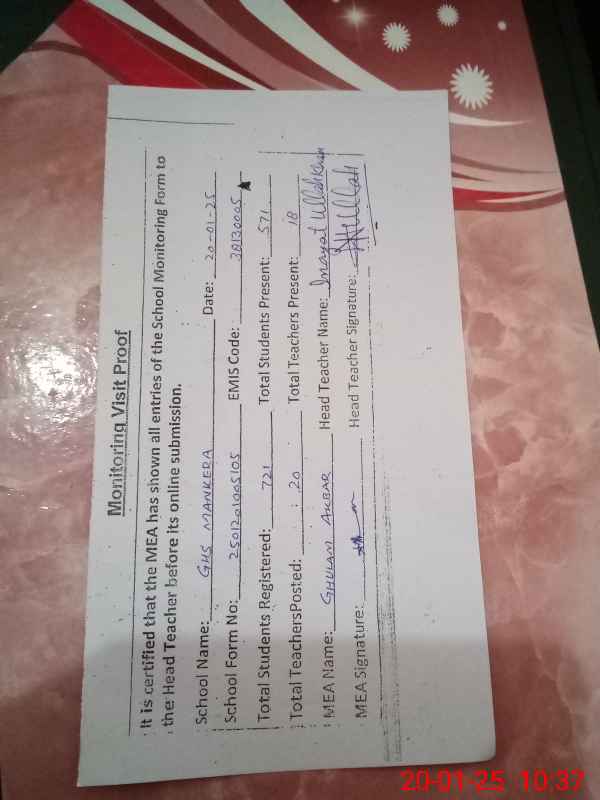 Monitoring Visit Proof
It is certified that the MEA has shown all entries of the School Monitoring Form to
the Head Teacher before its online submission.
School Name: GHS MANKERA Date: 20-01-25
School Form No: 2501201005105 EMIS Code: 38130005
Total Students Registered: 721 Total Students Present: 571
Total TeachersPosted: 20 Total Teachers Present: 18
MEA Name: GHULAM AKBAR Head Teacher Name: Inayat Ullah Khan
MEA Signature: Head Teacher Signature:
20-01-25 10:37